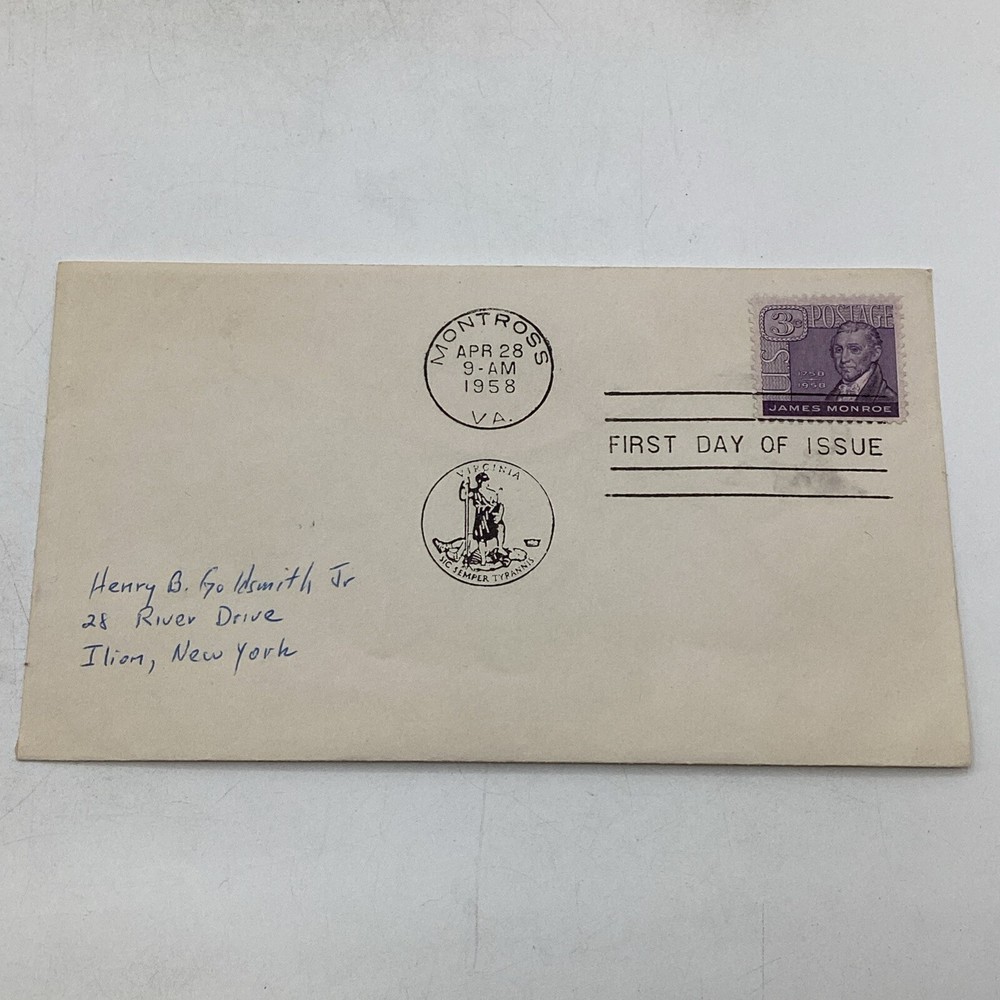 MONTROSS
APR 28
9-AM
1958
VA.
3c POSTAGE
US
1758
1958
JAMES MONROE
FIRST DAY OF ISSUE
VIRGINIA
SIC SEMPER TYRANNIS
Henry B. Goldsmith Jr
28 River Drive
Ilion, New York